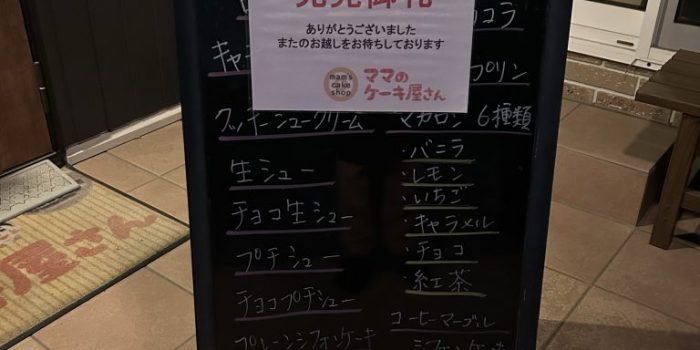 完売御礼
ありがとうございました
またのお越しをお待ちしております
mam's
cake
shop
ママの
ケーキ屋さん
キャ
クッキーシュークリーム
生シュー
チョコ生シュー
プチシュー
チョコプチシュー
プレーンシフォンケーキ
コラ
プリン
マカロン 6種類
・バニラ
・レモン
・いちご
・キャラメル
・チョコ
・紅茶
コーヒーマーブル
シフォンケーキ
屋さん